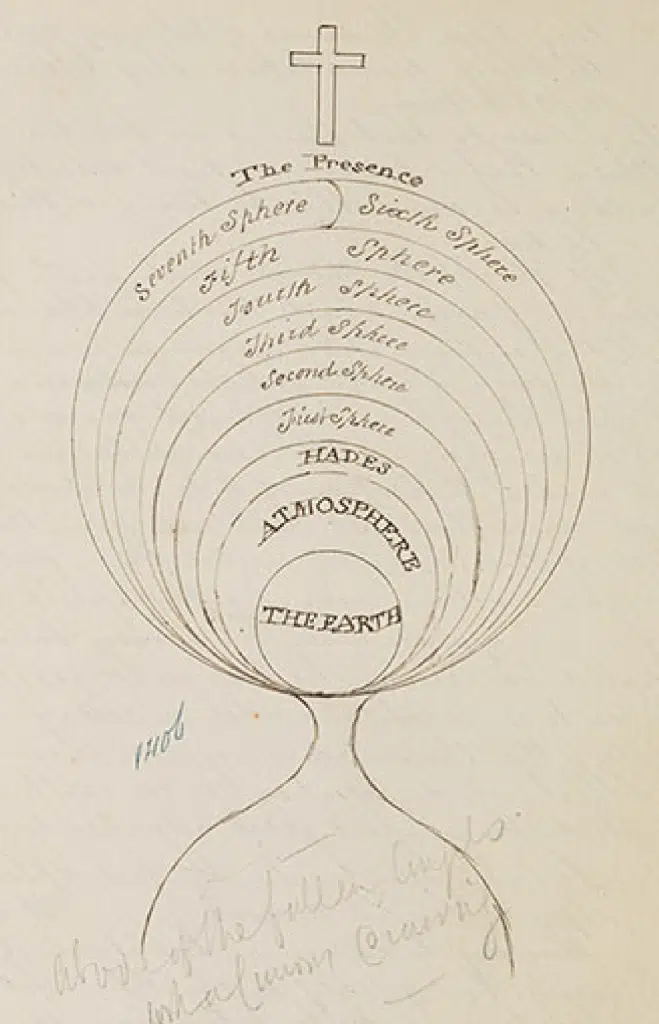 The Presence
Seventh Sphere Sixth Sphere
Fifth Sphere
Fourth Sphere
Third Sphere
Second Sphere
First Sphere
HADES
ATMOSPHERE
THE EARTH
1406
Abode of the fallen Angels
what a Curious